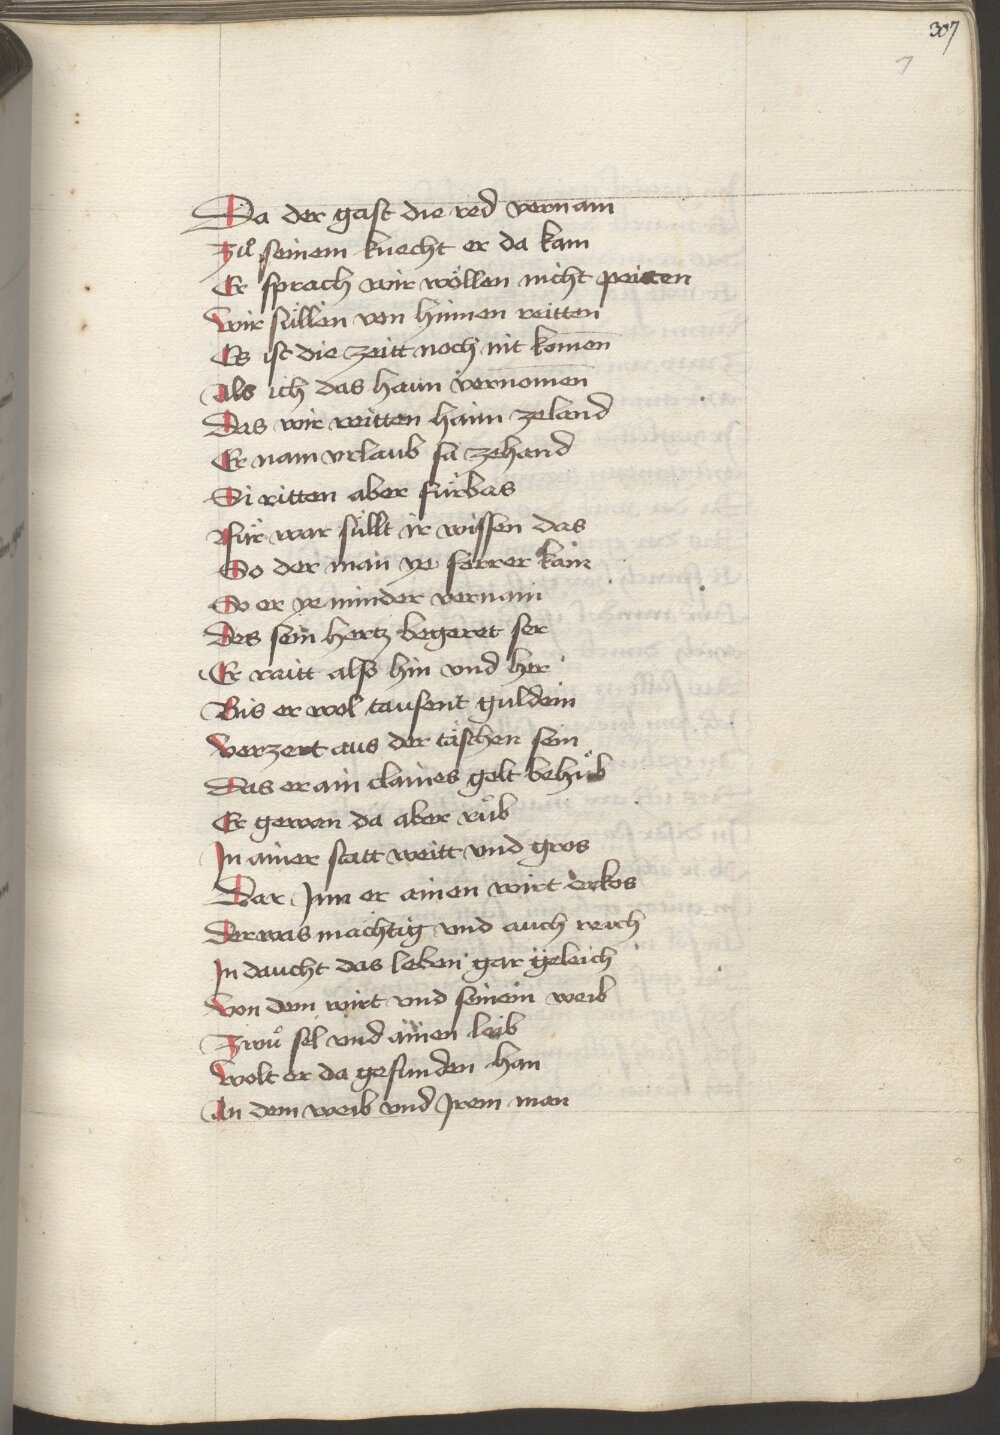 307
7
Da der gast die red vernam
Zuͦ seinem knecht er da kam
Er sprach wir wöllen nicht peitten
Wir süllen von hinnen reitten
Es ist die zeitt noch nit komen
Als ich das haun vernomen
Das wir reitten haim zeland
Er nam vrlaub sa zehand
Si ritten aber fürbas
Für war süllt ir wissen das
So der man ye ferrer kam
So er ye minder vernam
Des sein hertz begeret ser
Er raitt alß hin vnd her
Bis er wol tausent guldein
Verzert aus der täschen sein
Das er ain claines gelt behuͦb
Er gewan da aber ruͦb
In ainer statt weitt vnd gros
Dar Jnn er ainen wirt erkos
Der was mächtig vnd auch reich
In daucht das leben gar geleich
Von dem wirt vnd seinem weib
Zwuͦ sel vnd ainen leib
Wolt er da gefunden han
An dem weib vnd Jrem man